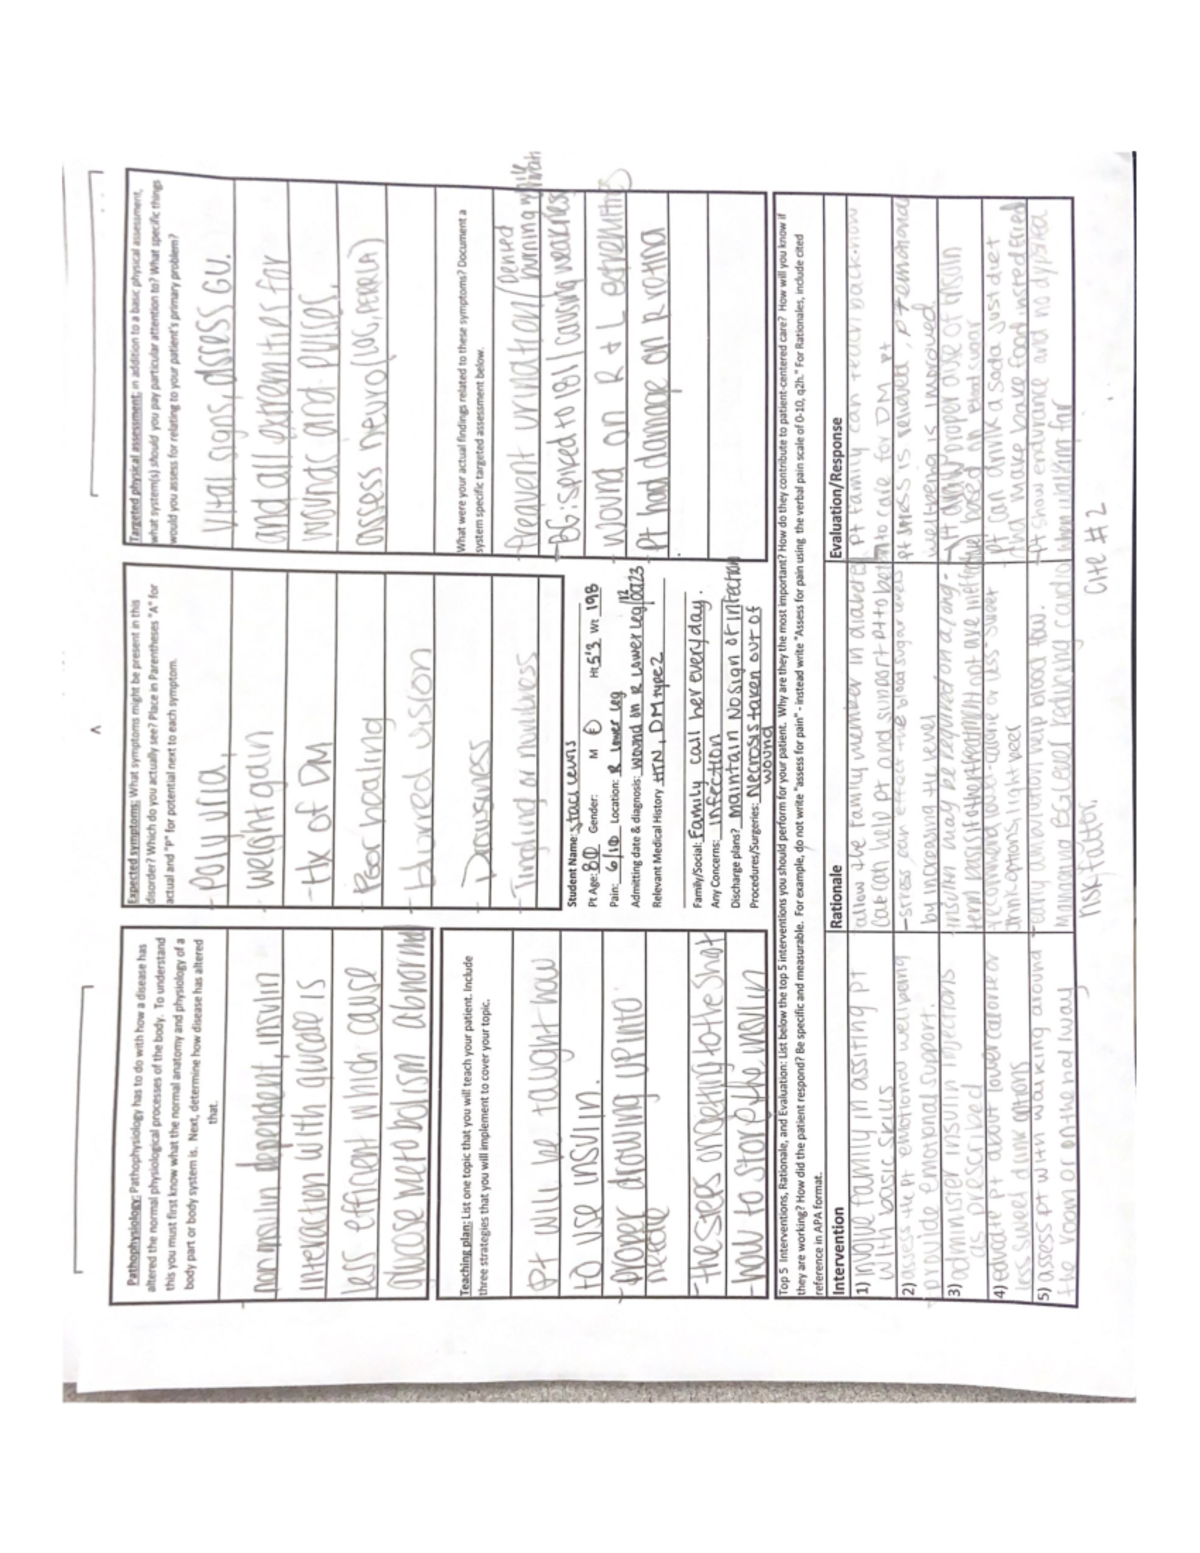 Pathophysiology: Pathophysiology has to do with how a disease has
altered the normal physiological processes of the body. To understand
this you must first know what the normal anatomy and physiology of a
body part or body system is. Next, determine how disease has altered
that.
non insulin dependent, insulin
interaction with glucose is
less efficient which cause
glucose metabolism abnormal
Expected symptoms: What symptoms might be present in this
disorder? Which do you actually see? Place in Parentheses "A" for
actual and "P" for potential next to each symptom.
- Polyuria,
- weight gain
- Hx of DM
- Poor healing
- blurred vision
- Drowsines
- Tingling or numbnes
Targeted physical assessment: in addition to a basic physical assessment,
what system(s) should you pay particular attention to? What specific things
would you assess for relating to your patient's primary problem?
Vital signs, assess GU.
and all extremities for
wounds and pulses.
assess neuro (LOC, PERRLA)
Teaching plan: List one topic that you will teach your patient. Include
three strategies that you will implement to cover your topic.
pt will be taught how
to use insulin.
- proper drawing up into
- the steps on getting to the shot
- how to store the insulin
Student Name: Staci Lewis
Pt Age: 80 Gender: M F Ht 5'3 Wt 198
Pain: 6/10 Location: R lower leg
Admitting date & diagnosis: wound on R lower leg
Relevant Medical History HTN, DM type 2
Family/Social: Family call her everyday.
Any Concerns: infection
Discharge plans? maintain No sign of infection
Procedures/Surgeries: Necrosis taken out of
wound
What were your actual findings related to these symptoms? Document a
system specific targeted assessment below.
- frequent urination/ denied burning
- BG: spiked to 181 causing
- wound on R & L extremities
- Pt had damage on R retina
Top 5 Interventions, Rationale, and Evaluation: List below the top 5 interventions you should perform for your patient. Why are they the most important? How do they contribute to patient-centered care? How will you know if
they are working? How did the patient respond? Be specific and measurable. For example, do not write "assess for pain" - instead write "Assess for pain using the verbal pain scale of 0-10, q2h." For Rationales, include cited
reference in APA format.
Intervention Rationale Evaluation/Response
1) involve family in assiting pt
with basic skills
allow the family member in diabetes
care can help pt and support pt to better
pt family can teach back how
to care for DM pt
2) assess the pt emotional wellbeing
provide emotional support.
- stress can effect the blood sugar levels
by increasing the level
pt stress is relieved, pt emotional
wellbeing is improved
3) administer insulin injections
as prescribed
insulin may be required on a long-
term basis if other treatment
proper use of insulin
based on blood sugar
4) educate pt about lower calorie or
less sweet drink options
recommending low-calorie or less sweet
drink options, light beer
pt can drink a soda just diet
and make bake food instead fried
5) assess pt with walking around
the room or on the hallway
- early ambulation help blood flow.
Managing BG level reducing cardio
risk factor.
- pt show endurance and no dyspnea
when walking far
cite #2